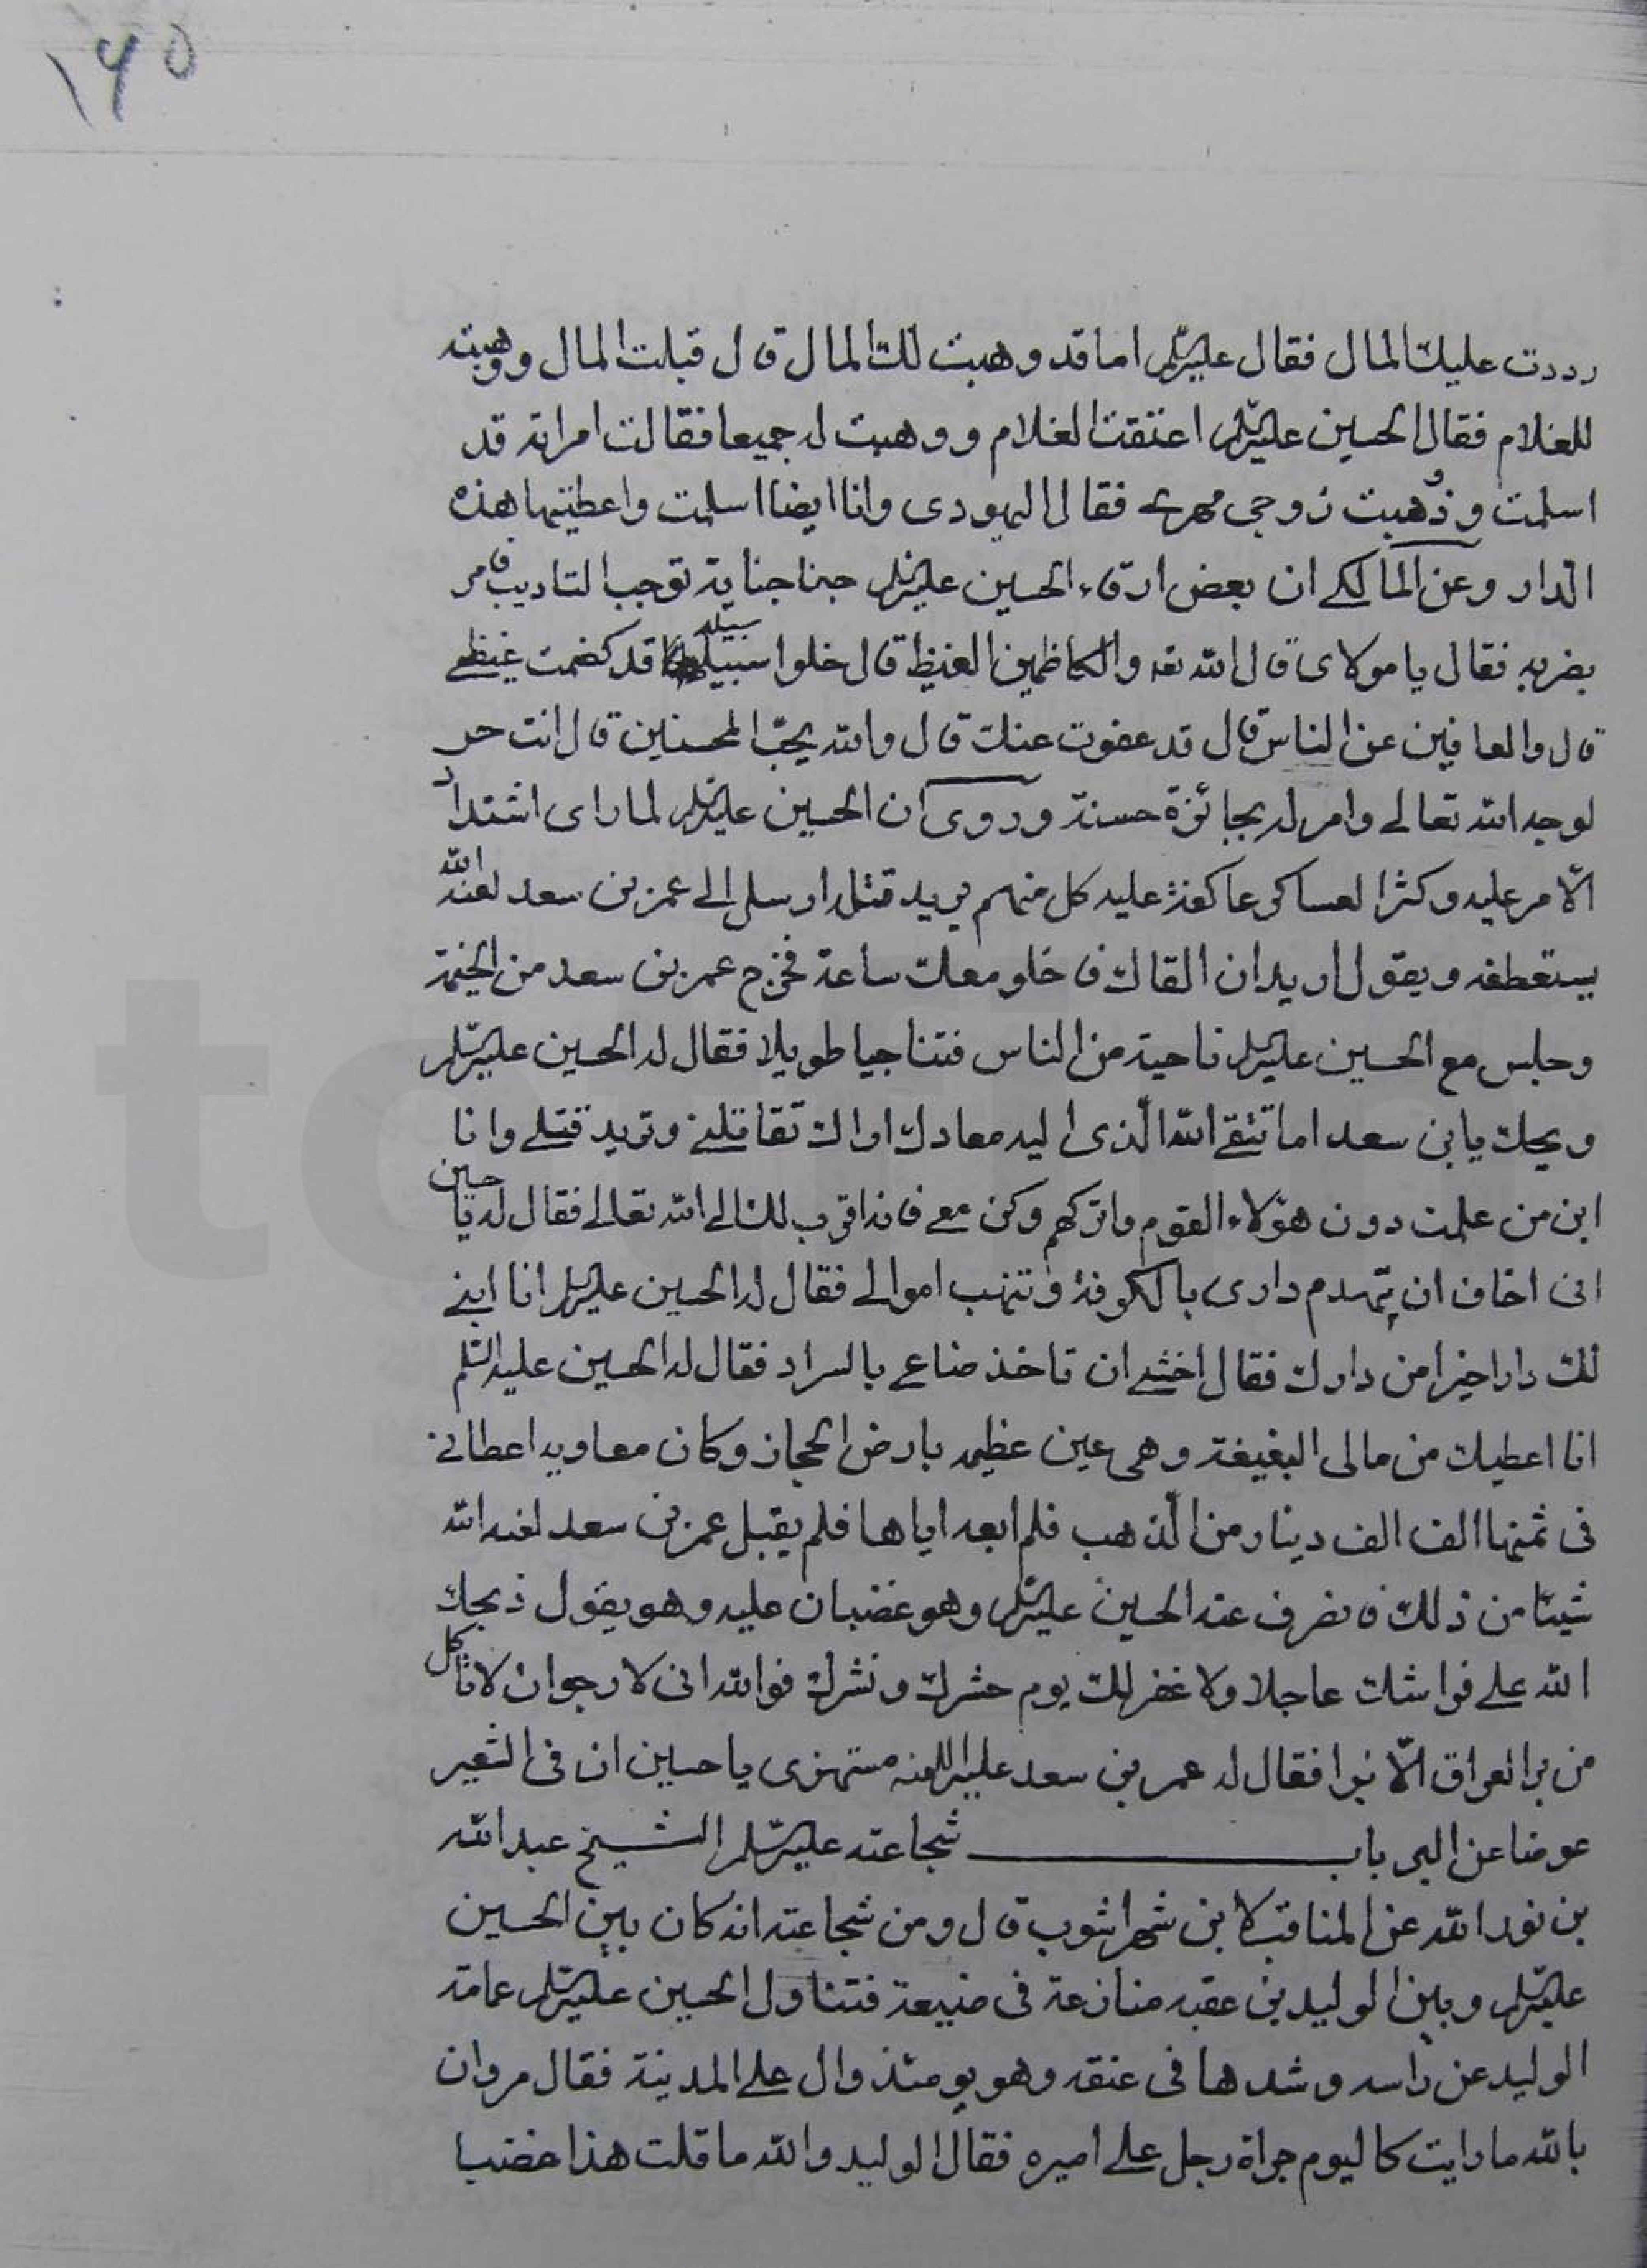 ١٦٥
رددت عليك المال فقال عليه السلم اما قد وهبت لك المال قال قبلت المال ووهبته
للغلام فقال الحسين عليه السلم اعتقت الغلام ووهبت له جميعا فقالت امراته قد
اسلمت ووهبت زوجي مهري فقال اليهودى وانا ايضا اسلمت واعطيتها هذه
الدار وعن المالكي ان بعض ارقاء الحسين عليه السلم جنا جناية توجب التاديب فامر
بضربه فقال يا مولاى قال الله تعه والكاظمين الغيظ قال خلوا سبيله قد كضمت غيظي
قال والعافين عن الناس قال قد عفوت عنك قال والله يحب المحسنين قال انت حر
لوجه الله تعالى وامر له بجائزة حسنة وروى ان الحسين عليه السلم لما راى اشتداد
الامر عليه وكثرة العساكر عاكفة عليه كل منهم يريد قتله ارسل الى عمر بن سعد لعنه الله
يستعطفه ويقول اريد ان القاك فاخلو معك ساعة فخرج عمر بن سعد من الخيمة
وجلس مع الحسين عليه السلم ناحية من الناس فتناجيا طويلا فقال له الحسين عليه السلم
ويحك يابن سعد اما تتقي الله الذى اليه معادك اراك تقاتلني وتريد قتلي وانا
ابن من علمت دون هؤلاء القوم واتركهم وكن معي فانه اقرب لك الى الله تعالى فقال له يا حسين
انى اخاف ان يهدم دارى بالكوفة وتنهب اموالي فقال له الحسين عليه السلم انا ابني
لك دارا خيرا من دارك فقال اخشى ان تاخذ ضياعي بالسراد فقال له الحسين عليه السلم
انا اعطيك من مالى البغيغة وهى عين عظيمه بارض الحجاز وكان معاويه اعطاني
فى ثمنها الف الف دينار من الذهب فلم ابعه اياها فلم يقبل عمر بن سعد لعنه الله
شيئا من ذلك فانصرف عنه الحسين عليه السلم وهو غضبان عليه وهو يقول ذبحك
الله على فراشك عاجلا ولا غفر لك يوم حشرك ونشرك فوالله انى لارجو ان لا تاكل
من بر العراق الا يسرا فقال له عمر بن سعد عليه اللعنه مستهزى يا حسين ان فى الشعير
عوضا عن البر باب شجاعته عليه السلم الشيخ عبد الله
بن نور الله عن المناقب لابن شهراشوب قال ومن شجاعته انه كان بين الحسين
عليه السلم وبين الوليد بن عقبه منازعة فى ضيعة فتناول الحسين عليه السلم عمامة
الوليد عن راسه وشدها فى عنقه وهو يومئذ وال على المدينة فقال مروان
بالله ما رايت كاليوم جراة رجل على اميره فقال الوليد والله ما قلت هذا غضبا